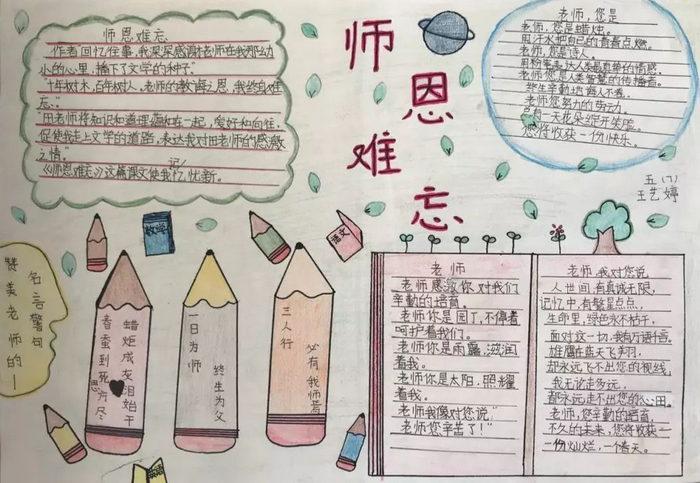 师恩难忘
师恩难忘
"作者回忆往事,我深深感谢老师在我那幼
小的心里,播下了文学的种子"
"十年树木,百年树人,老师的教诲之恩,我终身难
忘。"
"田老师将知识和道理蕴和在一起,爱好和向往,
促使我走上文学的道路,表达我对田老师的感激
之情。
《师恩难忘》这篇课文使我记忆忧新。
老师,您是
老师,您是蜡烛。
用汗水把自己的青春点燃。
老师,您是诗人。
用粉笔表达人类最真挚的情感。
老师您是人类智慧的传播者。
终生辛勤培诲人不卷。
老师您努力的劳动,
有一天花朵绽开笑脸。
您将收获一份快乐。
五(7)
王艺婷
数学
语文
赞美老师的
名言警句
春蚕到死思方尽
蜡炬成灰泪始干
一日为师
终生为父
三人行
必有我师者
老师
老师感激你,对我们
辛勤的培育。
老师你是园丁,不停着
呵护着我们。
老师你是雨露,滋润
着我。
老师你是太阳,照耀
着我。
老师我像对您说"
老师您辛苦了!"
老师,我对您说
人世间,有真诚无限,
记忆中,有繁星点点,
生命里,绿色永不枯干,
面对这一切,我有万语千言。
雄鹰在蓝天飞翔,
却永远飞不出您的视线。
我无论走多远,
却永远走不出您的心田。
老师,您辛勤的培育
不久的未来,您将收获一
一份灿烂,一个春天。